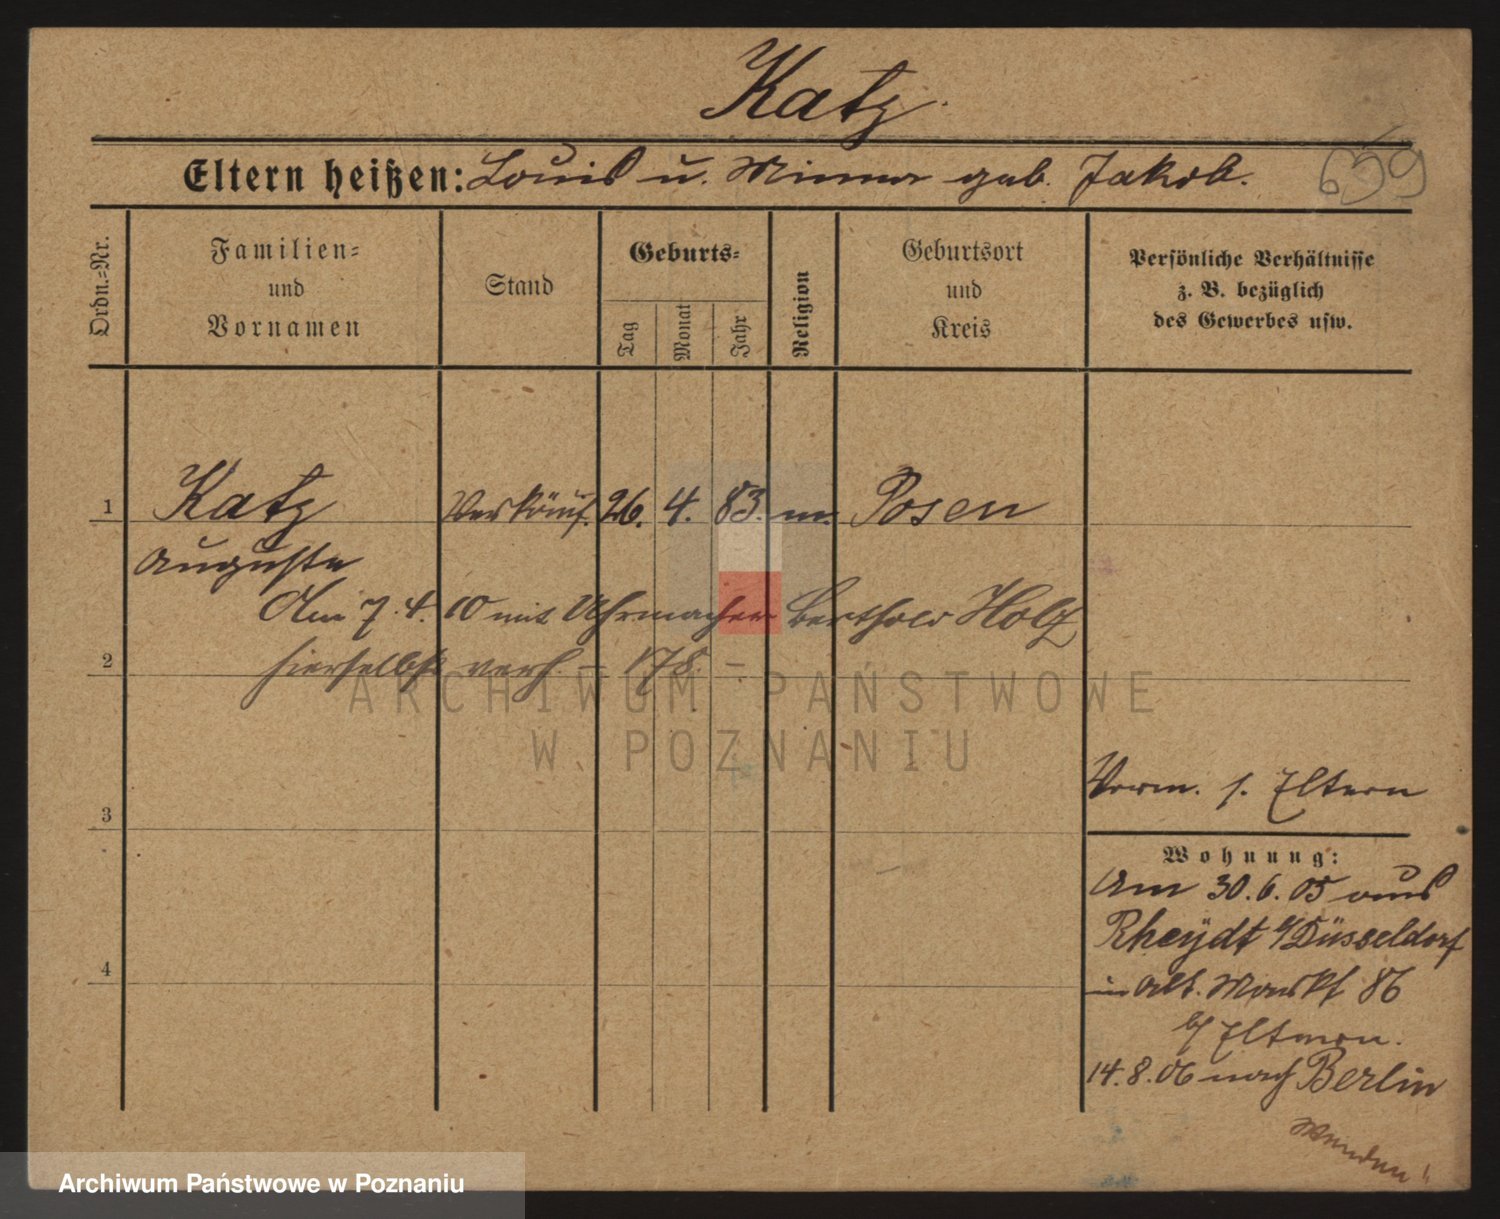 Katz
Eltern heißen: Louis u. Minna geb. Jakob.
Ordn.-Nr.
Familien-
und
Vornamen
Stand
Geburts-
Tag
Monat
Jahr
Religion
Geburtsort
und
Kreis
Persönliche Verhältnisse
z. B. bezüglich
des Gewerbes usw.
1 Katz Verkäuf. 26. 4. 83. m. Posen
Auguste
Am 7.4.10 mit Uhrmacher Berthold Holz
2 hierselbst verh. – 178. –
ARCHIWUM PAŃSTWOWE
W POZNANIU
Verm. s. Eltern
3
Wohnung:
Am 30.6.05 aus
Rheydt b/Düsseldorf
in Alt. Markt 86
b/ Eltern.
4
14.8.06 nach Berlin
Wenden!
Archiwum Państwowe w Poznaniu